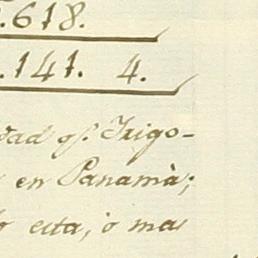 .618.
.141. 4.
dad qᵉ. Trigo-
en Panamà;
esta, ò mas